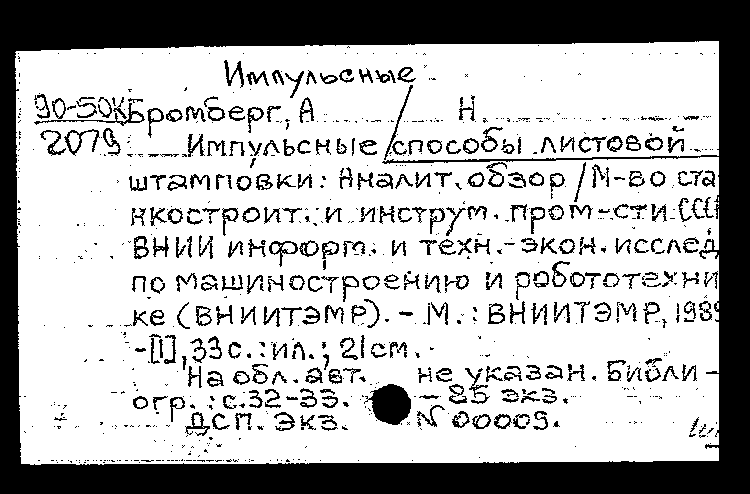 Импульсные
90-50К Бромберг, А Н
2079 Импульсные способы листовой
штамповки: Аналит. обзор / М-во ста
нкостроит. и инструм. пром-сти ССС
ВНИИ информ. и техн.-экон. исслед
по машиностроению и робототехни
ке (ВНИИТЭМР). - М. : ВНИИТЭМР, 1989
-[1], 33 с. : ил. ; 21 см.
На обл. авт. не указан. Библи-
огр. : с. 32-33. - 85 экз.
ДСП. Экз. N 00009.